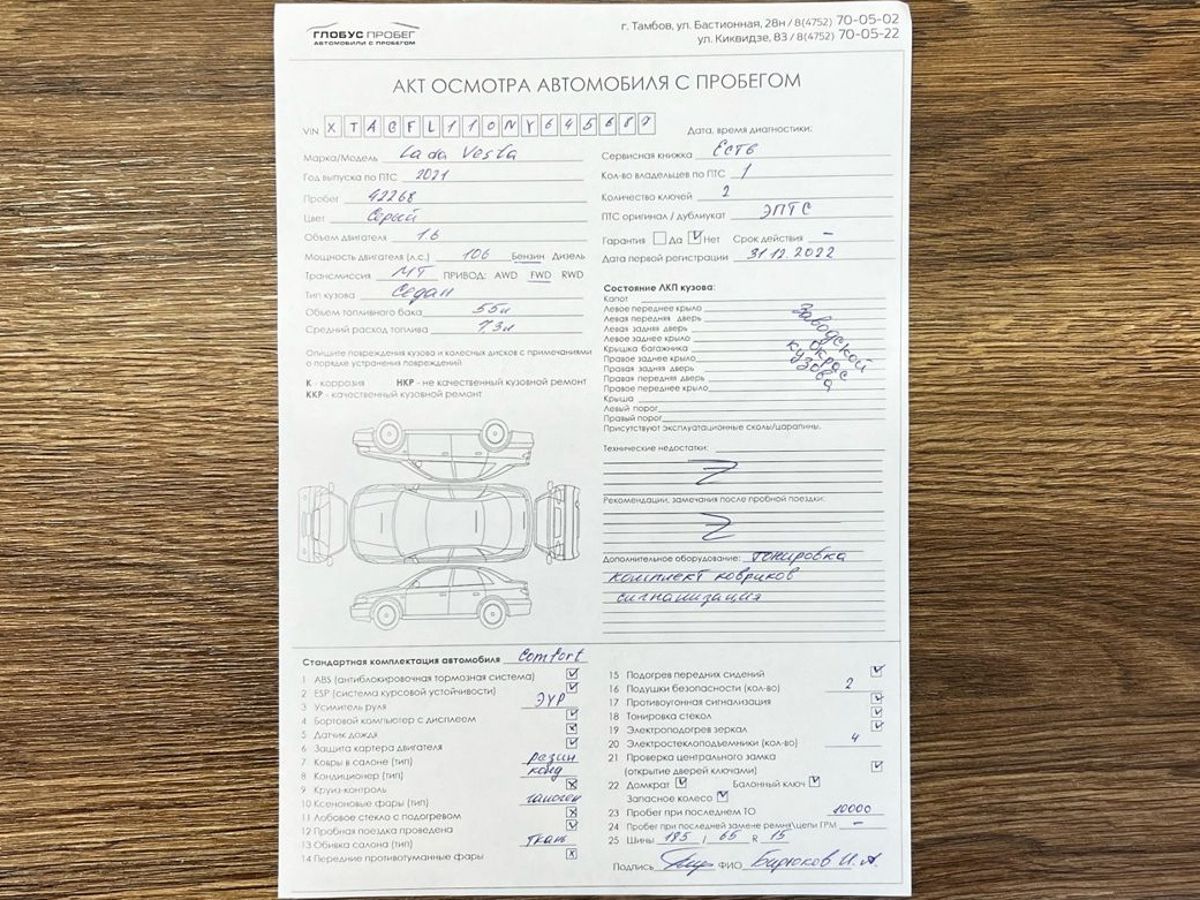 ГЛОБУС ПРОБЕГ
АВТОМОБИЛИ С ПРОБЕГОМ
г. Тамбов, ул. Бастионная, 28н / 8(4752) 70-05-02
ул. Киквидзе, 83 / 8(4752) 70-05-22
АКТ ОСМОТРА АВТОМОБИЛЯ С ПРОБЕГОМ
VIN XTAGFL110NY645687
Марка/Модель Lada Vesta
Год выпуска по ПТС 2021
Пробег 42268
Цвет Серый
Объем двигателя 1.6
Мощность двигателя (л.с.) 106 Бензин Дизель
Трансмиссия МТ ПРИВОД: AWD FWD RWD
Тип кузова Седан
Объем топливного бака 55л
Средний расход топлива 7,3л
Опишите повреждения кузова и колесных дисков с примечаниями
о порядке устранения повреждений
К - коррозия НКР - не качественный кузовной ремонт
ККР - качественный кузовной ремонт
Дата, время диагностики:
Сервисная книжка Есть
Кол-во владельцев по ПТС 1
Количество ключей 2
ПТС оригинал / дубликат ЭПТС
Гарантия Да Нет Срок действия –
Дата первой регистрации 31.12.2022
Состояние ЛКП кузова:
Капот
Левое переднее крыло
Левая передняя дверь
Левая задняя дверь
Левое заднее крыло
Крышка багажника
Правое заднее крыло
Правая задняя дверь
Правая передняя дверь
Правое переднее крыло
Крыша
Левый порог
Правый порог
Заводской
окрас
кузова
Присутствуют эксплуатационные сколы/царапины.
Технические недостатки:
Рекомендации, замечания после пробной поездки:
Дополнительное оборудование: тонировка
комплект ковриков
сигнализация
Стандартная комплектация автомобиля Comfort
1 ABS (антиблокировочная тормозная система)
2 ESP (система курсовой устойчивости)
3 Усилитель руля ЭУР
4 Бортовой компьютер с дисплеем
5 Датчик дождя
6 Защита картера двигателя
7 Ковры в салоне (тип) резин
8 Кондиционер (тип) конд
9 Круиз-контроль
10 Ксеноновые фары (тип) галоген
11 Лобовое стекло с подогревом
12 Пробная поездка проведена
13 Обивка салона (тип) ткань
14 Передние противотуманные фары
15 Подогрев передних сидений
16 Подушки безопасности (кол-во) 2
17 Противоугонная сигнализация
18 Тонировка стекол
19 Электроподогрев зеркал
20 Электростеклоподъемники (кол-во) 4
21 Проверка центрального замка
(открытие дверей ключами)
22 Домкрат Балонный ключ
Запасное колесо
23 Пробег при последнем ТО 10000
24 Пробег при последней замене ремня\цепи ГРМ –
25 Шины 185 / 65 R 15
Подпись ФИО Бирюков И.А.